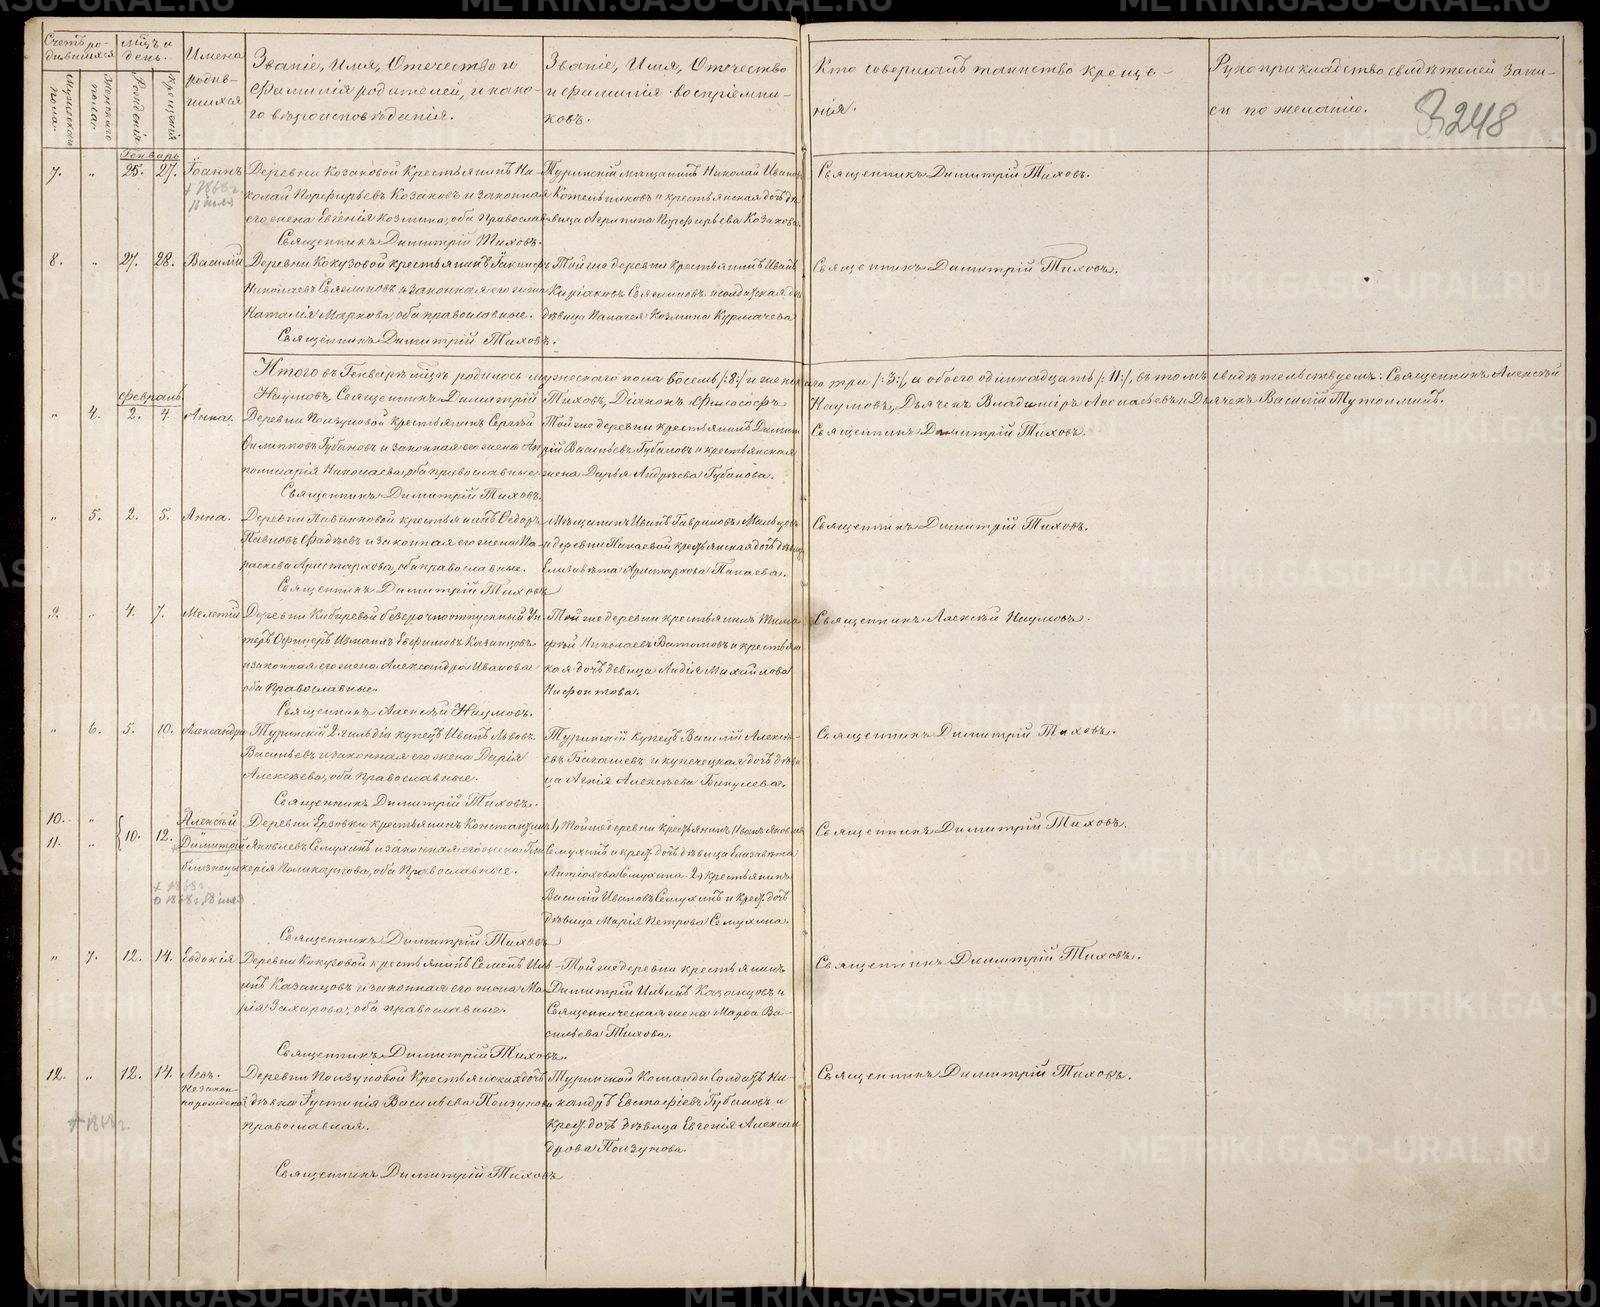 Счетъ ро-
дившихся
Мужескаго
пола.
Женскаго
пола.
Мѣцъ и
день.
Рожденія
Крещенія
Имена
родив-
шихся
Званіе, Имя, Отечество и
Фамилія родителей, и како-
го вѣроисповѣданія.
Званіе, Имя, Отечество
и фамилія воспріемни-
ковъ.
Кто совершалъ таинство креще-
нія.
Рукоприкладство свидѣтелей запи-
си по желанію.
248
Генварь
7. " 25. 27. Іоаннъ
+ 1868 г.
Деревни Козаковой Крестьянинъ Ни-
колай Порфирьевъ Козаковъ и законная
его жена Евгенія Козмина, оба Православ.
Священникъ Димитрій Тиховъ.
Туринскій мѣщанинъ Николай Иванов
Котельниковъ и крестьянская дочь дѣ
вица Агрипина Порфирьева Козакова.
Священникъ Димитрій Тиховъ.
8. " 27. 28. Василій
Деревни Кокузовой крестьянинъ Іакинфъ
Николаевъ Связиновъ и законная его жена
Наталія Маркова, оба православные.
Священникъ Димитрій Тиховъ.
Той же деревни крестьянинъ Иванъ
Киріаковъ Связиновъ и солдатская до
дѣвица Палагея Козмина Курмачева
Священникъ Димитрій Тиховъ.
Итого въ Генварѣ мцѣ родилось мужескаго пола восемь /:8:/ и женскаго три /:3:/, а обоего одиннадцать /:11:/, въ томъ свидѣтельствуемъ: Священникъ Алексѣй
Наумовъ, Священникъ Димитрій Тиховъ, Діаконъ Философъ Наумовъ, Дьячекъ Владиміръ Аоспаьевъ и Дьячекъ Василій Тутолминъ.
февраль
" 4. 2. 4. Анна.
Деревни Ползуновой крестьянинъ Сергѣй
Филипповъ Губановъ и законная его жена Ап
полинарія Николаева, оба православные.
Священникъ Димитрій Тиховъ.
Той же деревни крестьянинъ Димит
рій Васильевъ Губановъ и крестьянская
жена Дарья Андрѣева Губанова.
Священникъ Димитрій Тиховъ.
" 5. 2. 5. Анна.
Деревни Павинковой крестьянинъ Ѳедоръ
Павловъ Фадѣевъ и законная его жена Па-
раскева Аристархова, оба православные.
Священникъ Димитрій Тиховъ
Мѣщанинъ Иванъ Гавриловъ Мальцов
и деревни Панаевой крестьянская дочь дѣвица
Елизавѣта Аристархова Панаева.
Священникъ Димитрій Тиховъ.
9. " 4. 7. Мелетій
Деревни Кибиревой безсрочноотпускный Ун
теръ Офицеръ Измаилъ Евфимовъ Казанцовъ
и законная его жена Александра Иванова
оба Православные.
Священникъ Алексѣй Наумовъ.
Той же деревни крестьянинъ Тимо
фѣй Николаевъ Вотомовъ и крестьян
кая дочь девица Лидія Михайлова
Нифонтова.
Священникъ Алексѣй Наумовъ.
" 6. 5. 10. Александра
Туринскій 2. гильдіи купецъ Иванъ Львовъ
Васильевъ и законная его жена Дарія
Алексѣева, оба православные.
Священникъ Димитрій Тиховъ.
Туринскій Купецъ Василій Алексѣ-
евъ Багашевъ и купеческая дочь дѣви
ца Агнія Алексѣева Бикулева.
Священникъ Димитрій Тиховъ.
10. " Алексѣй
11. " 10. 12. Димитрій
близнецы
+ 1868 г.
Деревни Ерзовки крестьянинъ Константинъ
Яковлевъ Семухинъ и законная его жена Гли
керія Поликарпова, оба Православные.
Священникъ Димитрій Тиховъ
1, Той же деревни крестьянинъ Иванъ Яковлев
Семухинъ и крест. дочь дѣвица Елизавѣта
Антіохова Семухина. 2, крестьянинъ
Василій Ивановъ Семухинъ и крест. дочь
дѣвица Марія Петрова Семухина.
Священникъ Димитрій Тиховъ.
" 7. 12. 14. Евдокія
Деревни Кокузовой крестьянинъ Семенъ Иль
инъ Казанцовъ и законная его жена Ма
рія Захарова, оба православные.
Священникъ Димитрій Тиховъ.
Той же деревни крестьянинъ
Димитрій Ильинъ Казанцовъ и
Священническая жена Марѳа Ва-
сильева Тихова.
Священникъ Димитрій Тиховъ.
12. " 12. 14. Левъ.
Незакон-
норожденный
+ 1868 г.
Деревни Ползуновой Крестьянская дочь
дѣвка Іустинія Васильева Ползунова
православная.
Священникъ Димитрій Тиховъ
Туринской Команды Солдатъ Ни-
кандръ Евстафіевъ Губановъ и
крест. дочь дѣвица Евгенія Алексан
дрова Ползунова.
Священникъ Димитрій Тиховъ.
METRIKI.GASO-URAL.RU